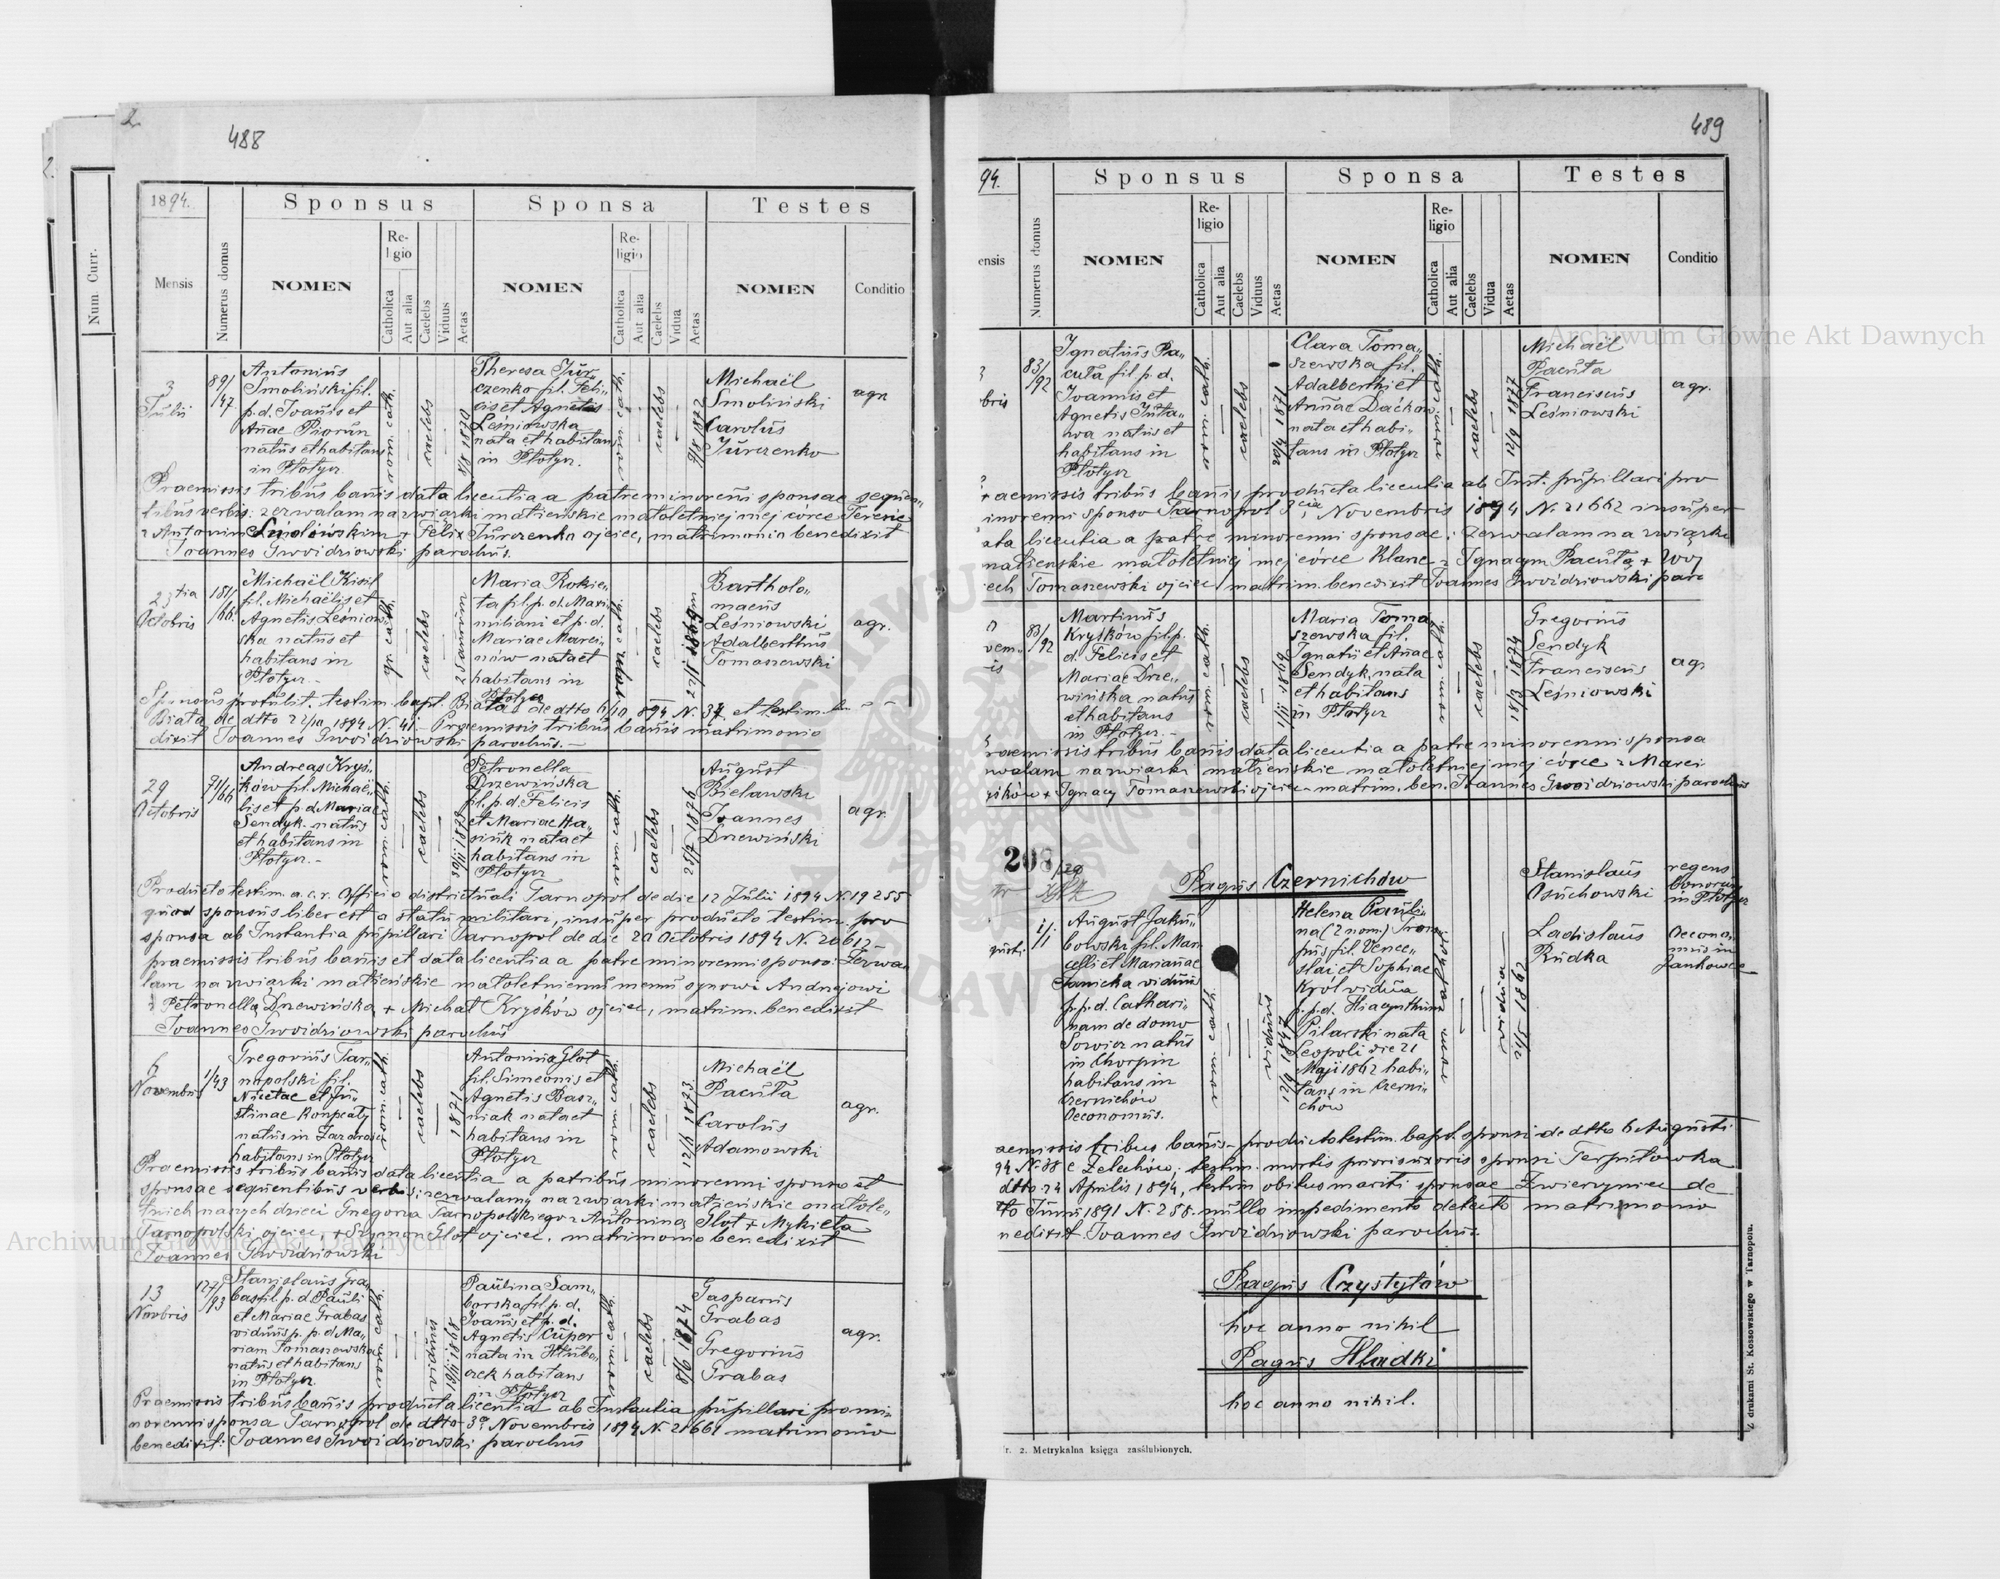 2
488
1894.
Mensis
Numerus domus
Sponsus
NOMEN
Religio
Catholica
Aut alia
Caelebs
Viduus
Aetas
Sponsa
NOMEN
Religio
Catholica
Aut alia
Caelebs
Vidua
Aetas
Testes
NOMEN
Conditio
Num. Curr.
3
Julii
89/
47
Antonius
Smoliński fil.
p. d. Joannis et
Annae Piorun
natus et habitans
in Płotycz.
rom. cath.
caelebs
8/8 1870
Theresa Jur-
czenko fil. Feli-
cis et Agnetis
Leśniowska
nata et habitans
in Płotycz.
rom. cath.
caelebs
Michaël
Smoliński
Carolus
Jurczenko
agr.
Praemissis tribus bannis data licentia a patre minorenni sponsae sequen-
tibus verbis: zezwalam na związki małżeńskie małoletniej mej córce Teresie
z Antonim Smolińskim + Felix Jurczenko ojciec, matrimonio benedixit
Joannes Gwoidziowski parochus.
23tia
Octobris
181/
66.
Michaël Kisil
fil. Michaëlis et
Agnetis Leśniow-
ska natus et
habitans in
Płotycz.-
gr. cath.
caelebs
Maria Rokie-
ta fil. p. d. Maxi-
miliani et p. d.
Mariae Marci-
nów nata et
habitans in
Płotycz
caelebs
Bartholo-
maeus
Leśniowski
Adalberthus
Tomaszewski
agr.
Sponsus protulit. testim. bapt. Biała de dtto 6/10 894 N. 37 et testim.
Biała de dtto 22/10 1894 N. 41 - Praemissis tribus bannis matrimonio
dixit Joannes Gwoidziowski parochus.-
29
Octobris
71/
66
Andreas Kryś-
ków fil. Michaë-
lis et p. d. Mariae
Sendyk natus
et habitans in
Płotycz.-
rom. cath.
caelebs
30/11 1872
Petronella
Drzewińska
fil. p. d. Felicis
et Mariae Ha-
siuk nata et
habitans in
Płotycz
rom. cath.
caelebs
25/7 1876
August
Bielawski
Joannes
Drzewiński
agr.
Producto testim. a c. r. Officio districtuali Tarnopol de die 12 Julii 1894 N. 19255
quod sponsus liber est a statu militari, insuper producto testim. pro
sponsa ab Instantia pupillari Tarnopol de die 20 Octobris 1894 N. 20612-
praemissis tribus bannis et data licentia a patre minorenni sponso: Zezwa-
lam na związki małżeńskie małoletniemu memu synowi Andrzejowi
z Petronellą Drzewińską + Michał Kryśków ojciec, matrim. benedixit
Joannes Gwoidziowski parochus
6
Novembris
1/43
Gregorius Tar-
nopolski fil.
Nicetae et Ju-
stinae Konpcaty
natus in Zazdrość
habitans in Płotycz
rom. cath.
caelebs
1871
Antonina Glot
fil. Simeonis et
Agnetis Basz-
niak nata et
habitans in
Płotycz
rom. cath.
caelebs
12/2 1873
Michaël
Pacuta
Carolus
Adamowski
agr.
Praemissis tribus bannis data licentia a patribus minorenni sponso et
sponsae sequentibus verbis: zezwalamy na związki małżeńskie małole-
tnich naszych dzieci Gregorza Tarnopolskiego z Antoniną Glot + Mykieta
Tarnopolski ojciec, + Szymon Glot ojciec, matrimonio benedixit
Joannes Gwoidziowski
13
Novbris
127/
93
Stanislaus Gra-
bas fil. p. d. Pauli
et Mariae Grabas
viduus p. p. d. Ma-
riam Tomaszewska
natus et habitans
in Płotycz
rom. cath.
viduus
19/11 1868
Paulina Sam-
borska fil. p. d.
Joannis et p. d.
Agnetis Cuper
nata in Hłubo-
czek habitans
in Płotycz
rom. cath.
caelebs
8/6 1874
Gasparus
Grabas
Gregorius
Grabas
agr.
Praemissis tribus bannis producta licentia ab Instantia pupillari promi-
norenni sponsa Tarnopol de dtto 3a Novembris 1894 N. 21661 matrimonio
benedixit: Joannes Gwoidziowski parochus
489
94.
ensis
Numerus domus
Sponsus
NOMEN
Religio
Catholica
Aut alia
Caelebs
Viduus
Aetas
Sponsa
NOMEN
Religio
Catholica
Aut alia
Caelebs
Vidua
Aetas
Testes
NOMEN
Conditio
bris
83/
92
Ignatius Pa-
cuta fil. p. d.
Joannis et
Agnetis Juta-
wa natus et
habitans in
Płotycz
rom. cath.
caelebs
20/7 1871
Clara Toma-
szewska fil.
Adalberthi et
Annae Daćków
nata et habi-
tans in Płotycz
rom. cath.
caelebs
12/9 1877
Michaël
Pacuta
Franciscus
Leśniowski
agr.
raemissis tribus bannis producta licentia ab Inst. pupillari pro
inorenni sponso Tarnopol 3cia Novembris 1894 N. 21662 insuper
ata licentia a patre minorenni sponsae: Zezwalam na związki
małżeńskie małoletniej mej córce Klarze z Ignacym Pacutą + Woj
iech Tomaszewski ojciec, matrim. benedixit Joannes Gwoidziowski paro
vem-
is
83/
92
Martinus
Kryśków fil. p.
d. Felicis et
Mariae Drze-
wińska natus
et habitans
in Płotycz.-
rom. cath.
caelebs
1/11 1869
Maria Toma
szewska fil.
Ignatii et Annae
Sendyk, nata
et habitans
in Płotycz
rom. cath.
caelebs
18/3 1874
Gregorius
Sendyk
Franciscus
Leśniowski
agr
raemissis tribus bannis data licentia a patre minorenni sponsa
zwalam na związki małżeńskie małoletniej mej córce z Marci
yśków + Ignacy Tomaszewski ojciec - matrim. ben. Joannes Gwoidziowski parochus
208
Pagus Czernichów
1/1
August Jaku-
bowski fil. Mar-
celli et Mariannae
Janicka viduus
p. p. d. Cathari-
nam de domo
Sowicz natus
in Chorpin
habitans in
Czernichów
Oeconomus.
rom. cath.
viduus
12/9 1847
Helena Pauli-
na (2 nom.) Prom
pus fil. Vence-
slai et Sophiae
Król vidua
p. p. d. Hiacynthum
Pilarski nata
Leopoli die 21
Maji 1862 habi-
tans in Czerni-
chów
vidua
21/5 1862
Stanislaus
Osuchowski
regens
bonorum
in Płotycz
Ladislaus
Rudka
oecono-
mus in
Jankowce
aemissis tribus bannis - producto testim. bapt. sponsi de dtto 6 Augusti
94 N. 88 e Zelechów, testim. mortis prioris uxoris sponsi Terpiłowka
dtto 24 Aprilis 1894, testim obitus mariti sponsae Zwierzyniec de
tto Junii 1891 N. 258. nullo impedimento detecto matrimonio
nedixit Joannes Gwoidziowski parochus.
Pagus Czystyłów
hoc anno nihil
Pagus Hładki
hoc anno nihil.
r. 2. Metrykalna księga zaślubionych.
Z drukarni St. Kossowskiego w Tarnopolu.
Archiwum Główne Akt Dawnych
Archiwum Główne Akt Dawnych